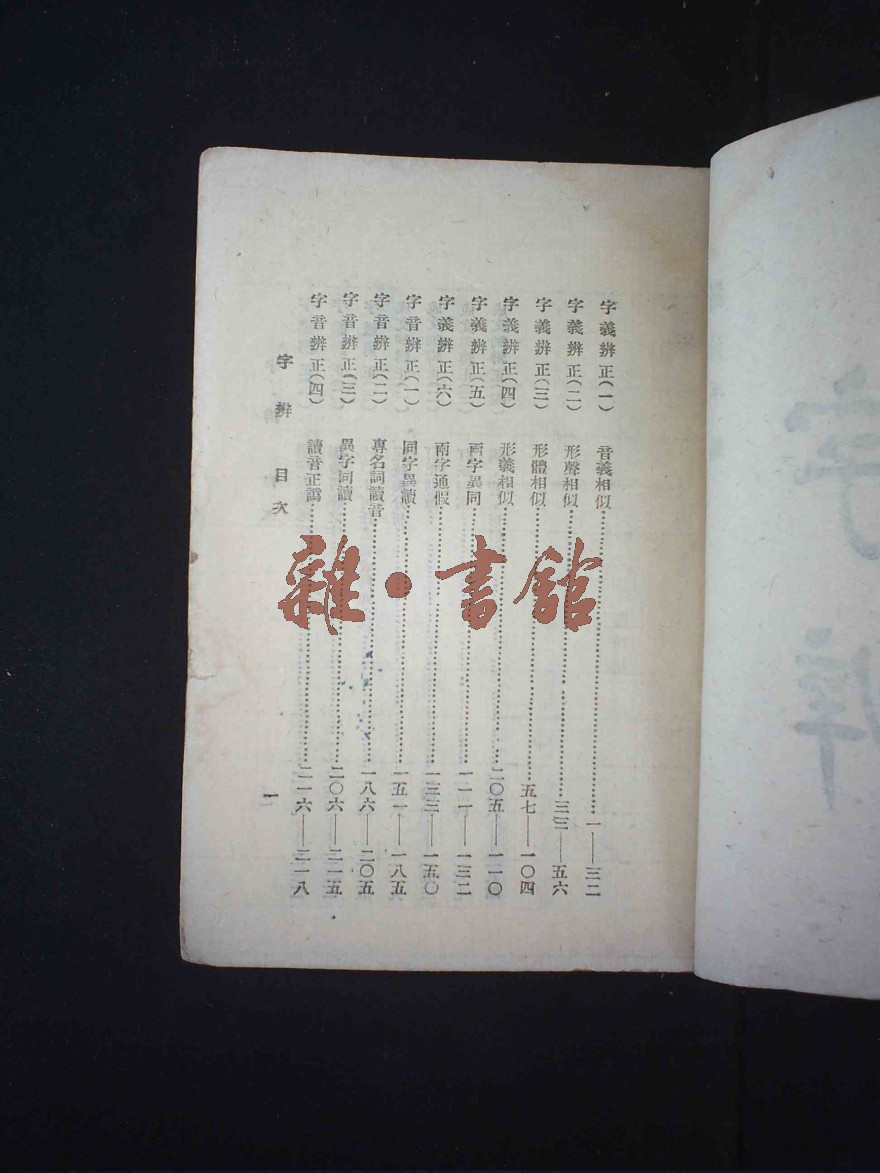 字義辨正(一) 音義相似……一——三二
字義辨正(二) 形聲相似……三三——五六
字義辨正(三) 形體相似……五七——一〇四
字義辨正(四) 形義相似……二〇五——一一〇
字義辨正(五) 兩字異同……一一一——一三二
字義辨正(六) 兩字通假……一三三——一五〇
字音辨正(一) 同字異讀……一五一——一八五
字音辨正(二) 專名詞讀音……一八六——二〇五
字音辨正(三) 異字同讀……二〇六——二一五
字音辨正(四) 讀音正譌……二一六——二一八
字辨 目次 一
雜·書館